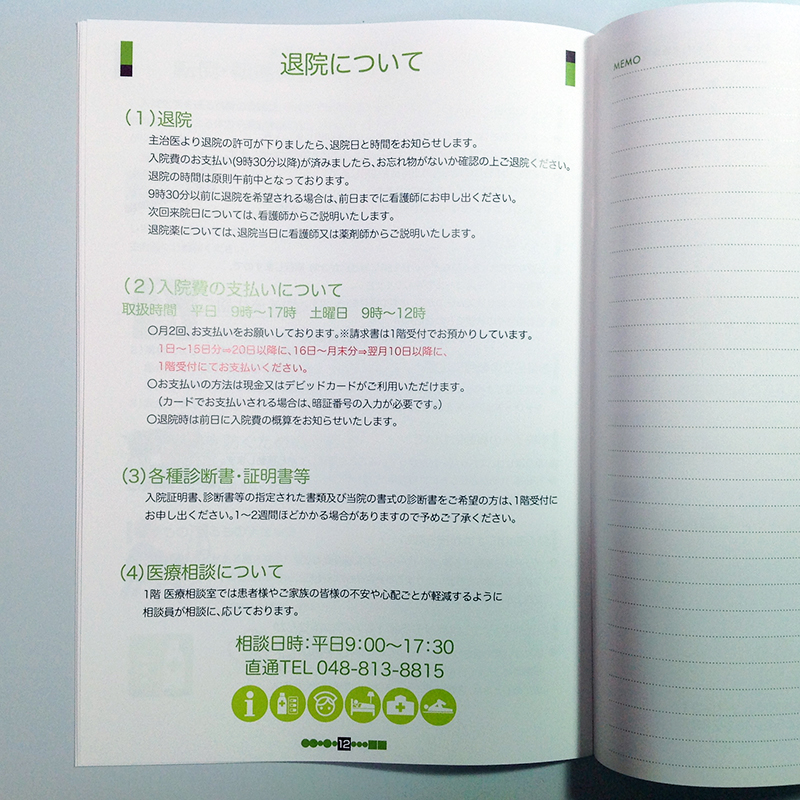 退院について
MEMO
（1）退院
主治医より退院の許可が下りましたら、退院日と時間をお知らせします。
入院費のお支払い(9時30分以降)が済みましたら、お忘れ物がないか確認の上ご退院ください。
退院の時間は原則午前中となっております。
9時30分以前に退院を希望される場合は、前日までに看護師にお申し出ください。
次回来院日については、看護師からご説明いたします。
退院薬については、退院当日に看護師又は薬剤師からご説明いたします。
（2）入院費の支払いについて
取扱時間　平日　9時〜17時　土曜日　9時〜12時
○月2回、お支払いをお願いしております。※請求書は1階受付でお預かりしています。
1日〜15日分⇒20日以降に、16日〜月末分⇒翌月10日以降に、
1階受付にてお支払いください。
○お支払いの方法は現金又はデビッドカードがご利用いただけます。
（カードでお支払いされる場合は、暗証番号の入力が必要です。）
○退院時は前日に入院費の概算をお知らせいたします。
（3）各種診断書・証明書等
入院証明書、診断書等の指定された書類及び当院の書式の診断書をご希望の方は、1階受付に
お申し出ください。1〜2週間ほどかかる場合がありますので予めご了承ください。
（4）医療相談について
1階 医療相談室では患者様やご家族の皆様の不安や心配ごとが軽減するように
相談員が相談に、応じております。
相談日時：平日9：00〜17：30
直通TEL 048-813-8815
12